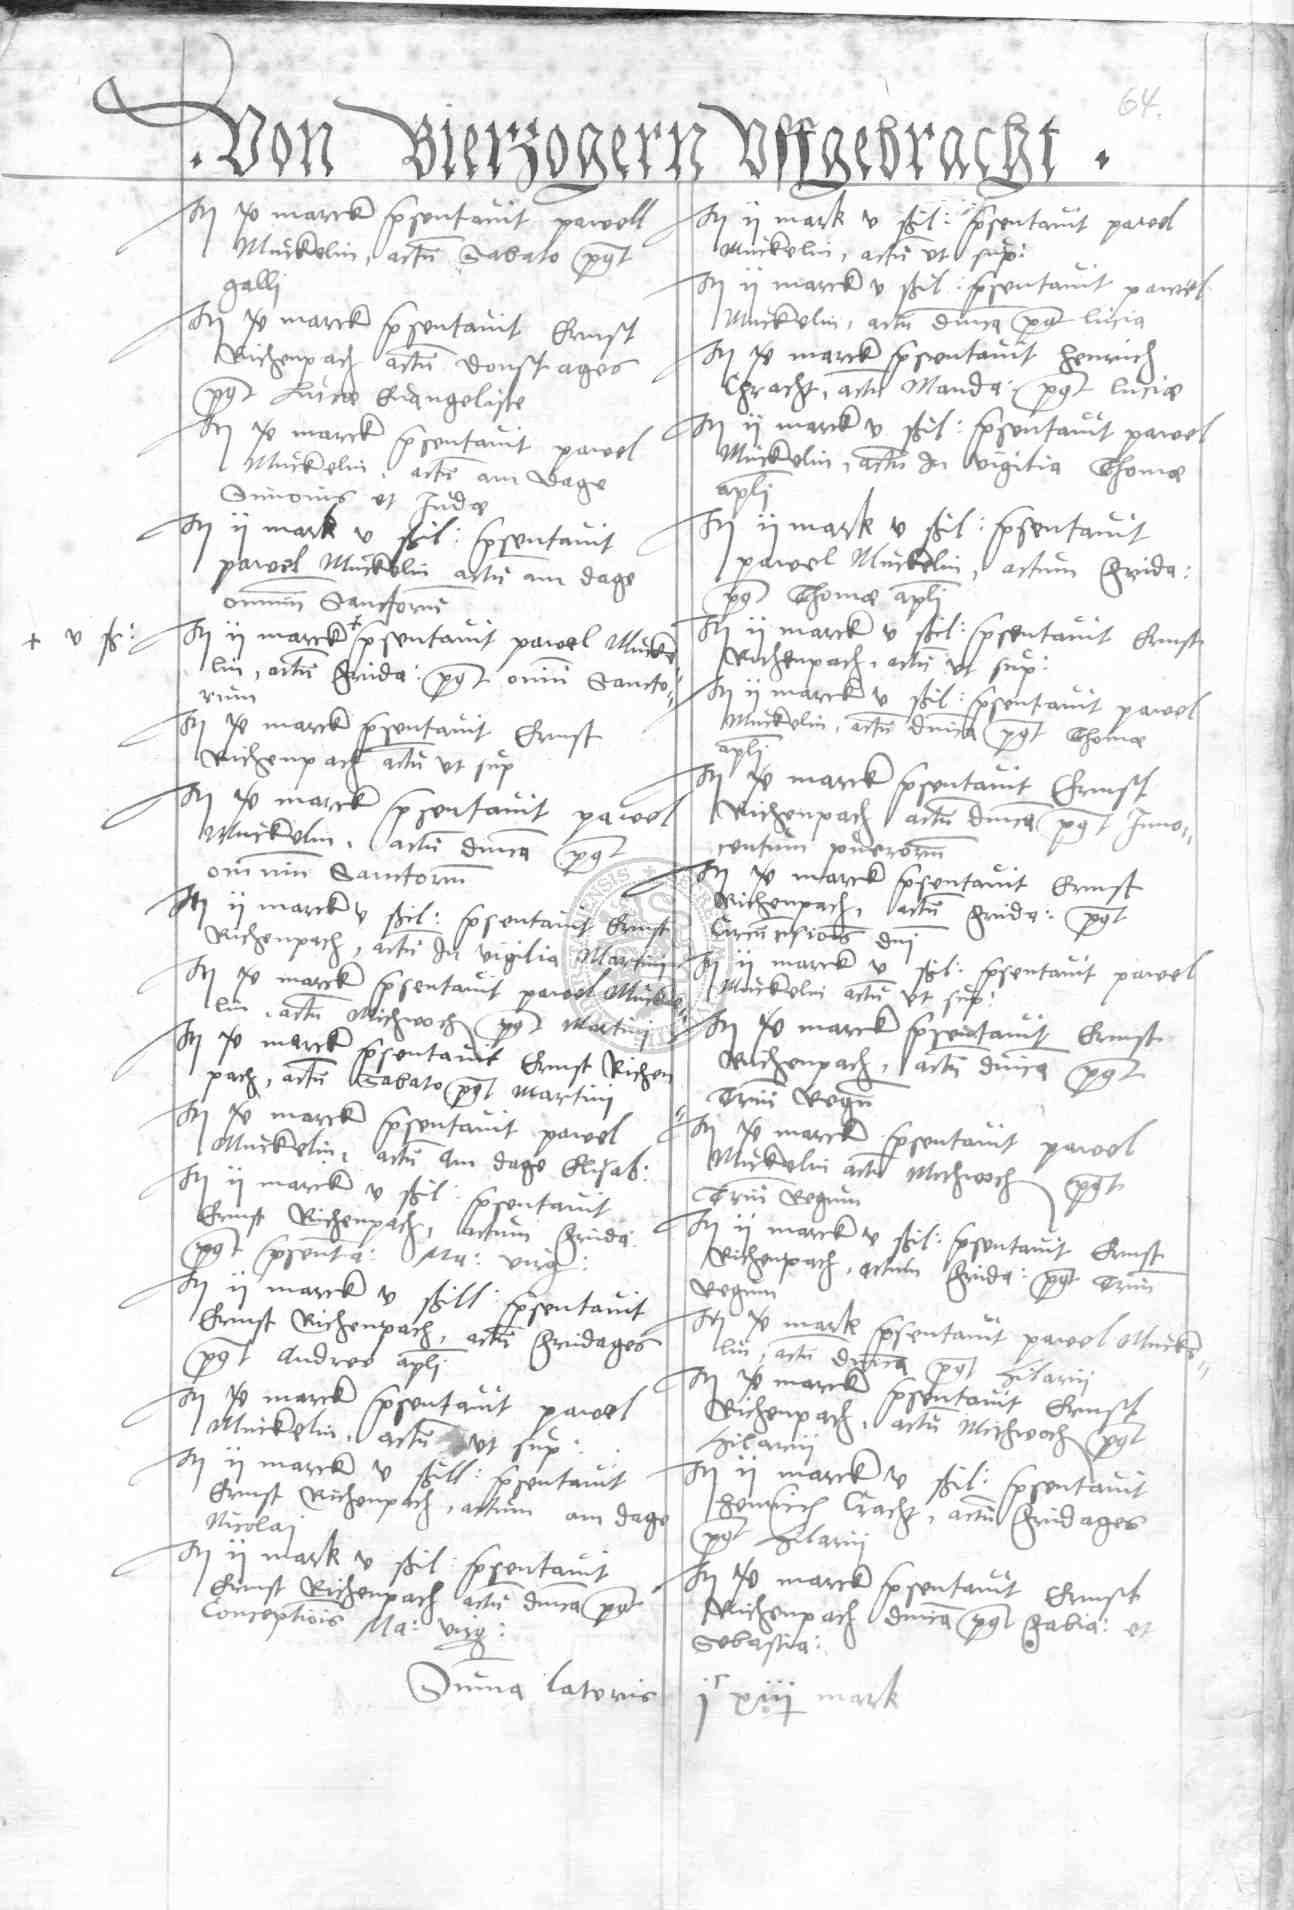 64.
· Von Bierzogern Uffgebracht ·
marck psentavit pawell
Muckelin, actu Sabato pqt
galli
marck psentavit Ernst
Richenpach actu donstages
pqt Luce Evangeliste
marck psentavit pawel
Muckelin, actu am dage
Simonis et Judae
ij mark v ßil: psentavit
pawel Muckelin actu am dage
omnium Sanctoru
+ v ß:
ij marck + psentavit pawel Mucke=
lin, actu Frida: pqt omniu Sancto=
rum
marck psentavit Ernst
Richenpach actu ut sup
marck psentavit pawel
Muckelin, actu dnica pqt
omnium Sanctorum
ij marck v ßil: psentavit Ernst
Richenpach, actu In vigilia Martini
marck psentavit pawel Mucke=
lin, actu Michwoch pqt Martini
marck psentavit Ernst Richen
pach, actu Sabato pqt Martini
marck psentavit pawel
Muckelin, actu am dage Elisab:
ij marck v ßil: psentavit
Ernst Richenpach, actum Frida:
pqt psenta: Ma: virg:
ij marck v ßill: psentavit
Ernst Richenpach, actu Fridages
pqt Andree apli
marck psentavit pawel
Muckelin, actu ut sup:
ij marck v ßill: psentavit
Ernst Richenpach, actum am dage
Nicolai
ij mark v ßil: psentavit
Ernst Richenpach actu dnica pqt
Conceptiois Ma: virg:
ij mark v ßil: psentavit pawel
Muckelin, actu ut sup:
ij marck v ßil: psentavit pawel
Muckelin, actu dnica pqt lucia
marck psentavit Henrich
Chracht, actu Manda: pqt luciae
ij marck v ßil: psentavit pawel
Muckelin, actu In vigilia Thomae
apli
ij mark v ßil: psentavit
pawel Muckelin, actum Frida:
pqt Thomae apli
ij marck v ßil: psentavit Ernst
Richenpach, actu ut sup:
ij marck v ßil: psentavit pawel
Muckelin, actu dnica pqt Thomae
apli
marck psentavit Ernst
Richenpach actu dnica pqt Inno=
centum puerorum
marck psentavit Ernst
Richenpach, actu Frida: pqt
Circucisiois dni
ij marck v ßil: psentavit pawel
Muckelin actu ut sup:
marck psentavit Ernst
Richenpach, actu dnica pqt
Triu Regu
marck psentavit pawel
Muckelin actu Michwoch pqt
Triu Regum
ij marck v ßil: psentavit Ernst
Richenpach, actum Frida: pqt Triu
Regum
mark psentavit pawel Mucke=
lin, actu dnica pqt Hilarii
marck psentavit Ernst
Richenpach, actu Michwoch pqt
Hilarii
ij marck v ßil: psentavit
Henrich Cracht, actu Fridages
pqt Hilarii
marck psentavit Ernst
Richenpach dnica pqt Fabia: et
Sebastia:
Suma lateris mark